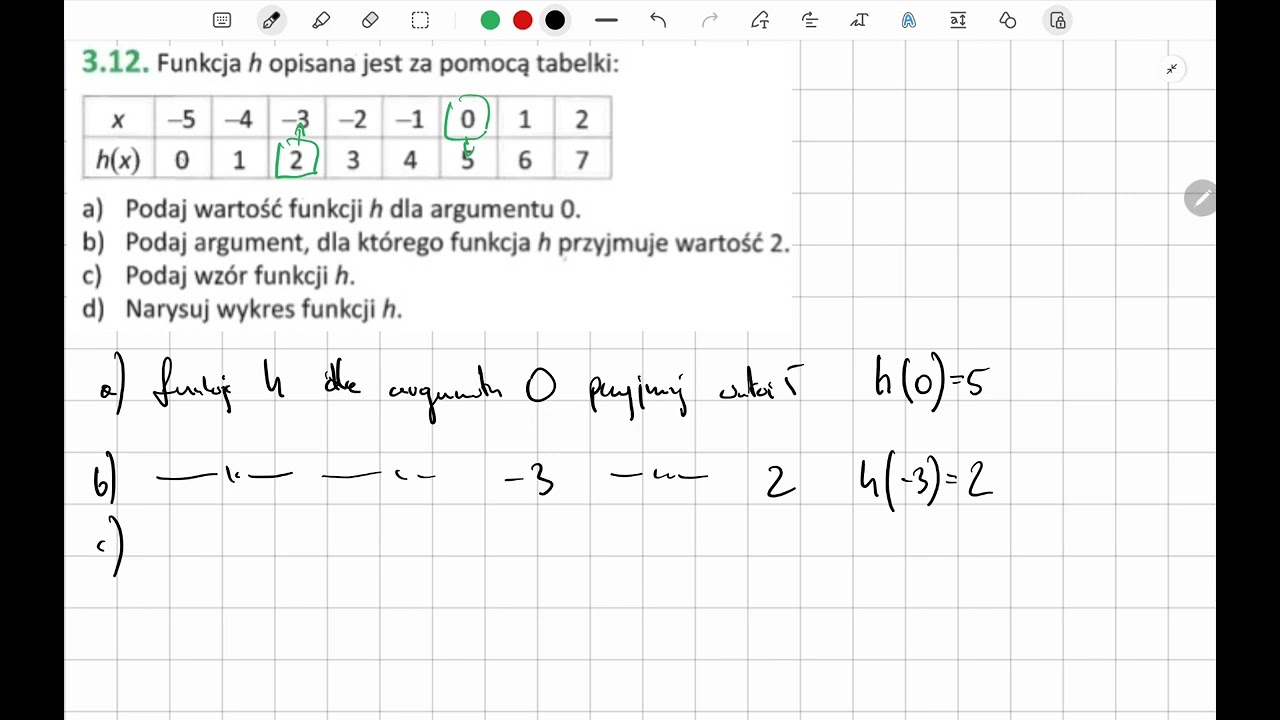 3.12. Funkcja h opisana jest za pomocą tabelki:
x −5 −4 −3 −2 −1 0 1 2
h(x) 0 1 2 3 4 5 6 7
a) Podaj wartość funkcji h dla argumentu 0.
b) Podaj argument, dla którego funkcja h przyjmuje wartość 2.
c) Podaj wzór funkcji h.
d) Narysuj wykres funkcji h.
a) funkcja h dla argumentu 0 przyjmuje wartość 5 h(0)=5
b) —〃— —〃— -3 —〃— 2 h(-3)=2
c)